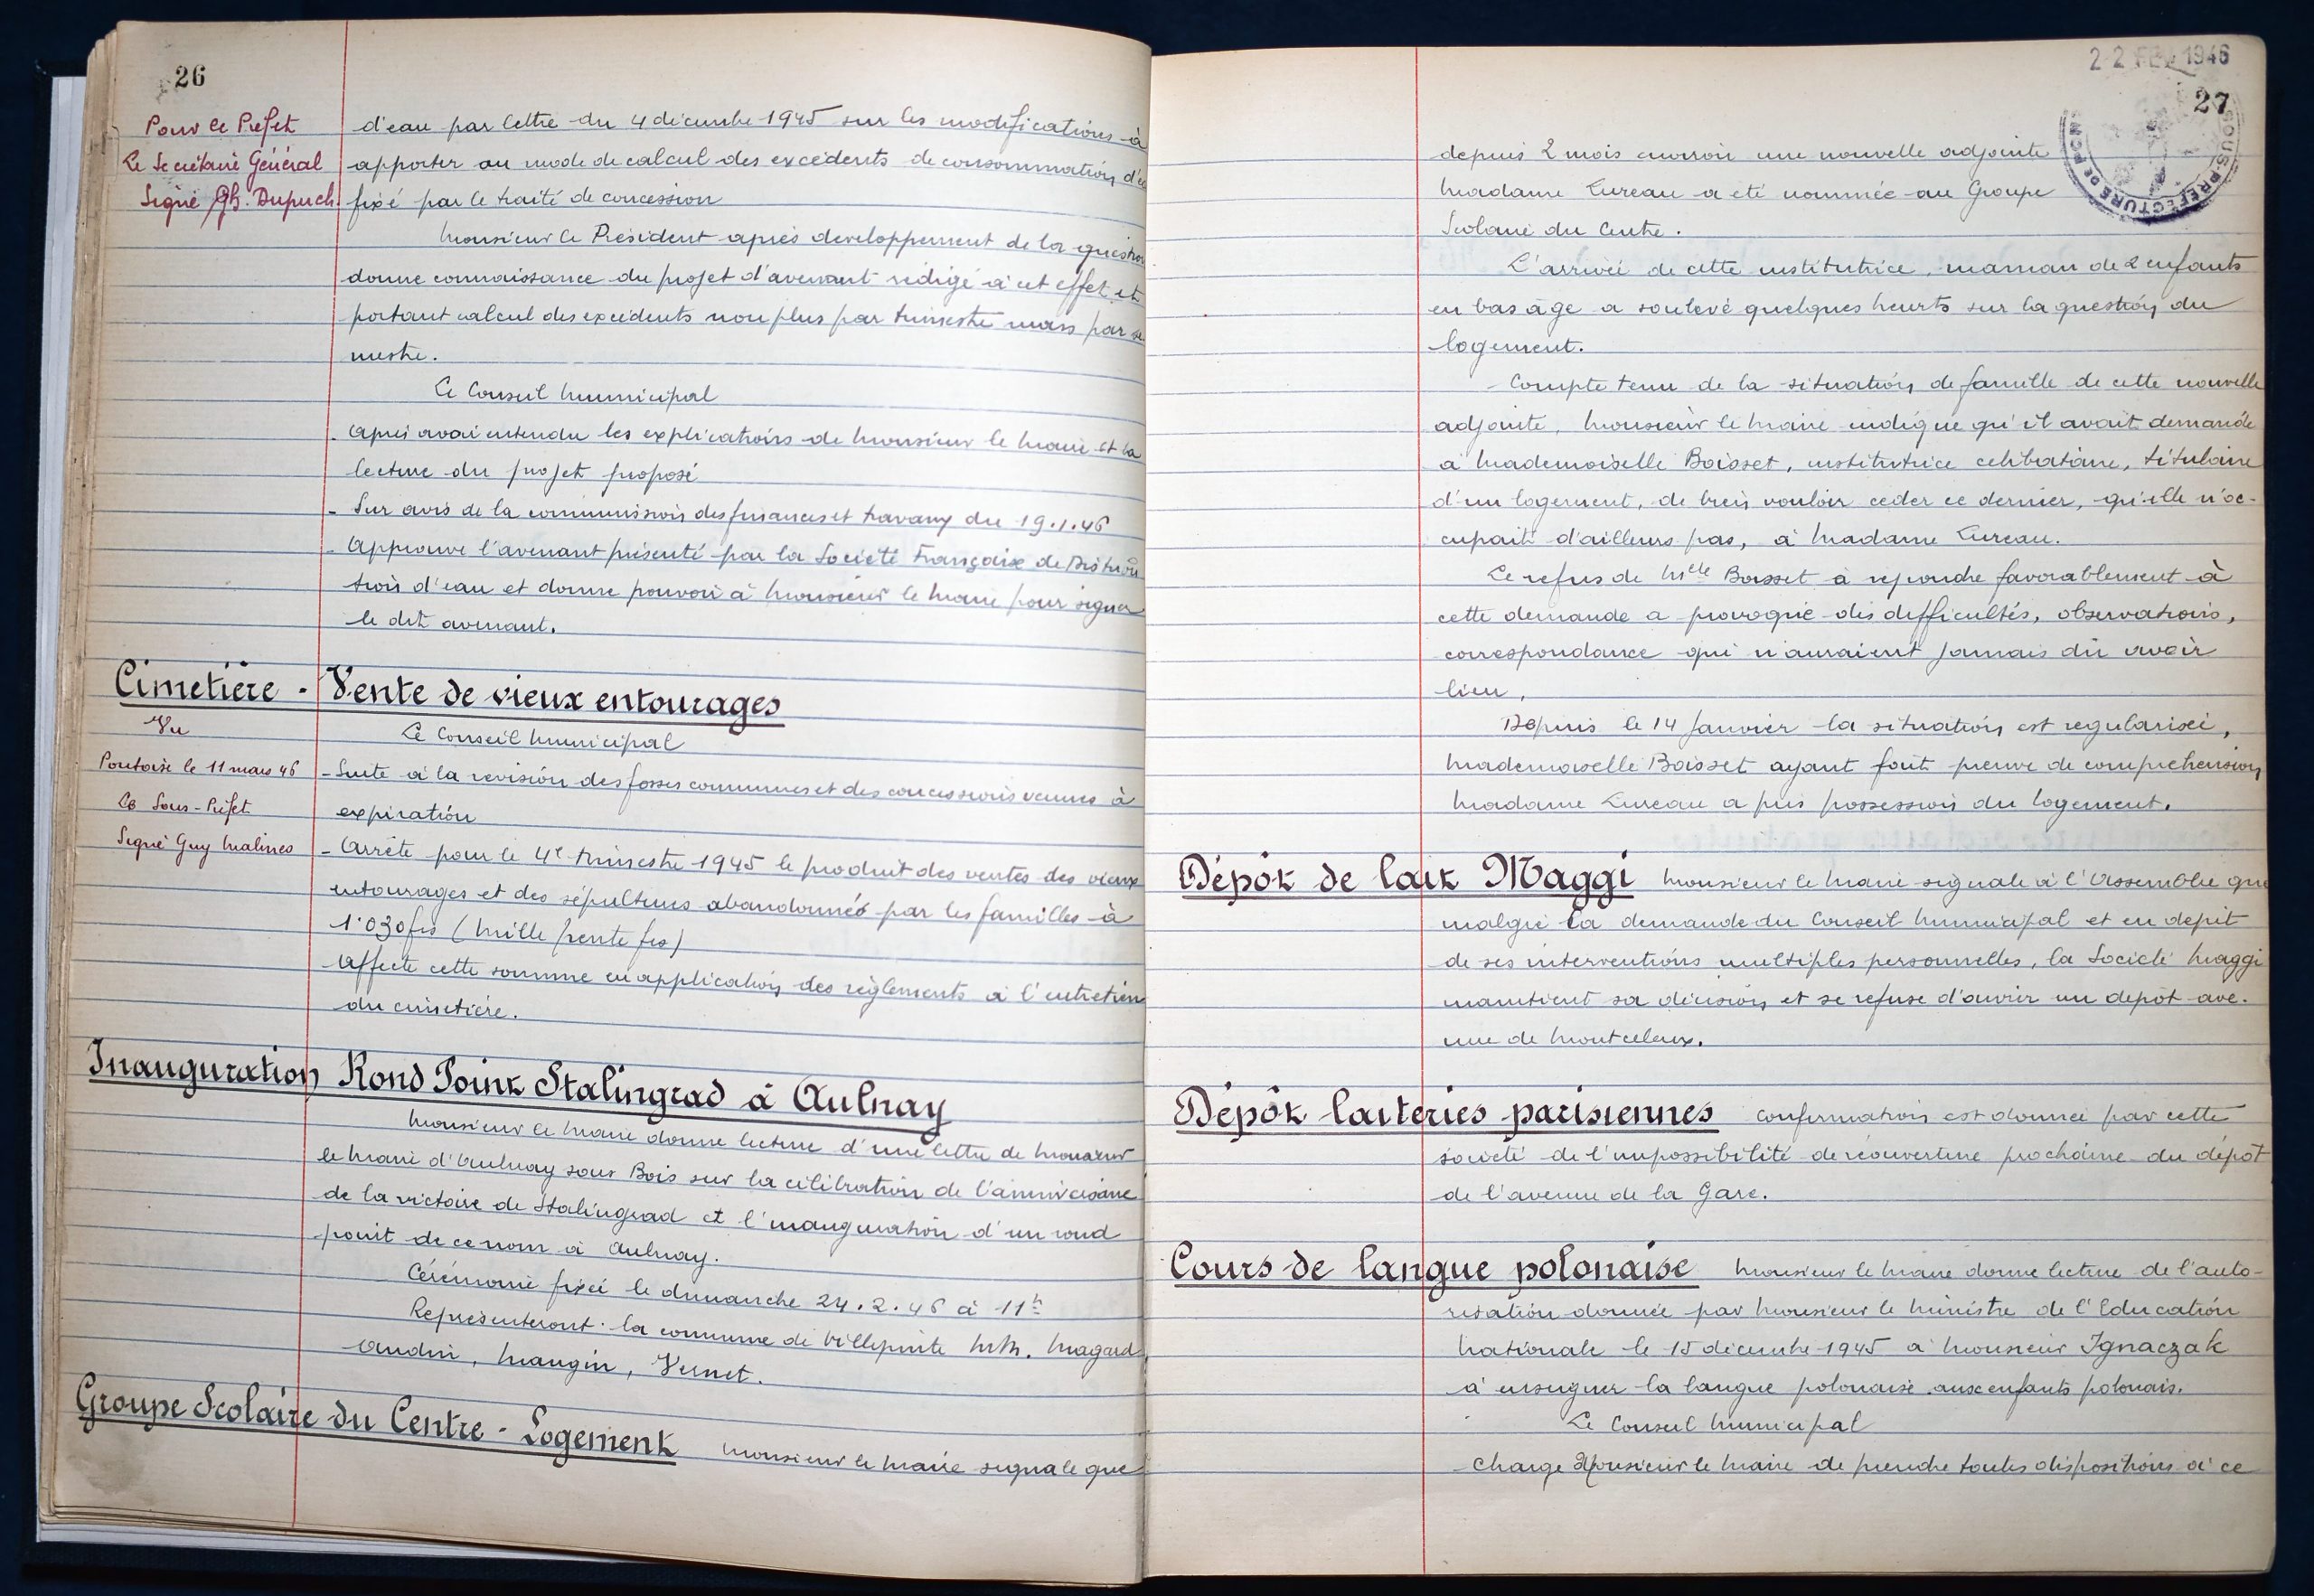 26
Pour le Préfet
Le Secrétaire Général
Signé Gh. Dupuch
d'eau par lettre du 4 décembre 1945 sur les modifications à
apporter au mode de calcul des excédents de consommation d'e
fixé par le traité de concession
Monsieur le Président après développement de la question
donne connaissance du projet d'avenant rédigé à cet effet et
portant calcul des excédents non plus par trimestre mais par se
mestre.
Le Conseil Municipal
- Après avoir entendu les explications de Monsieur le Maire et la
lecture du projet proposé
- Sur avis de la commission des finances et travaux du 19.1.46
- Approuve l'avenant présenté par la Société Française de Distribu
tion d'eau et donne pouvoir à Monsieur le Maire pour signer
le dit avenant.
Cimetière - Vente de vieux entourages
Vu
Pontoise le 11 mars 46
Le Sous-Préfet
Signé Guy Malines
Le Conseil Municipal
- Suite à la revision des fosses communes et des concessions venues à
expiration
- Arrête pour le 4e trimestre 1945 le produit des ventes des vieux
entourages et des sépultures abandonnés par les familles à
1.030 frs (Mille trente frs)
Affecte cette somme en application des règlements à l'entretien
du cimetière.
Inauguration Rond Point Stalingrad à Aulnay
Monsieur le Maire donne lecture d'une lettre de Monsieur
le Maire d'Aulnay sous Bois sur la célébration de l'anniversaire
de la victoire de Stalingrad et l'inauguration d'un rond
point de ce nom à Aulnay.
Cérémonie fixée le dimanche 24.2.46 à 11h
Représenteront la commune de Villepinte MM. Magard
Audin, Maugin, Vernet.
Groupe Scolaire du Centre - Logement Monsieur le Maire signale que
22 FEV 1946
27
SOUS PREFECTURE DE PON
depuis 2 mois environ une nouvelle adjointe
Madame Lureau a été nommée au Groupe
Scolaire du Centre.
L'arrivée de cette institutrice, maman de 2 enfants
en bas âge a soulevé quelques heurts sur la question du
logement.
Compte tenu de la situation de famille de cette nouvelle
adjointe, Monsieur le Maire indique qu'il avait demandé
à Mademoiselle Boisset, institutrice célibataire, titulaire
d'un logement, de bien vouloir céder ce dernier, qu'elle n'oc-
cupait d'ailleurs pas, à Madame Lureau.
Le refus de Melle Boisset à répondre favorablement à
cette demande a provoqué des difficultés, observations,
correspondance qui n'auraient jamais dû avoir
lieu.
Depuis le 14 Janvier la situation est régularisée,
Mademoiselle Boisset ayant fait preuve de compréhension
Madame Lureau a pris possession du logement.
Dépôt de lait Maggi Monsieur le Maire signale à l'Assemblée que
malgré la demande du Conseil Municipal et en dépit
de ses interventions multiples personnelles, la Société Maggi
maintient sa décision et se refuse d'ouvrir un dépôt ave-
nue de Montceleux.
Dépôt laiteries parisiennes Confirmation est donnée par cette
société de l'impossibilité de réouverture prochaine du dépôt
de l'avenue de la Gare.
Cours de langue polonaise Monsieur le Maire donne lecture de l'auto-
risation donnée par Monsieur le Ministre de l'Education
Nationale le 15 décembre 1945 à Monsieur Ignaczak
à enseigner la langue polonaise aux enfants polonais.
Le Conseil Municipal
Charge Monsieur le Maire de prendre toutes dispositions à ce